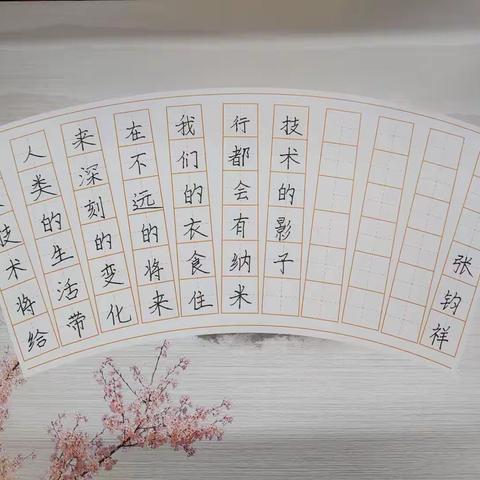 技术将给
人类的生活带
来深刻的变化
在不远的将来
我们的衣食住
行都会有纳米
技术的影子
张钧祥